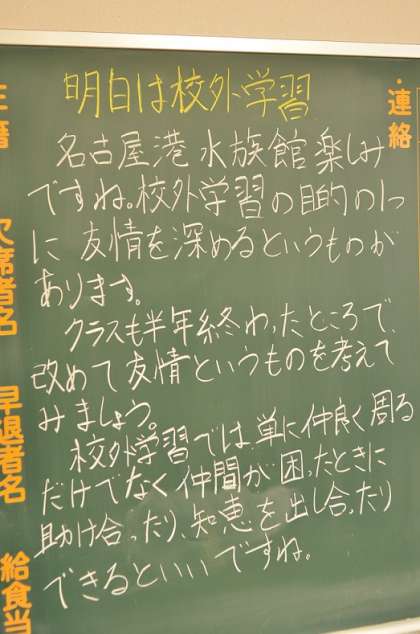 明日は校外学習
名古屋港水族館楽しみ
ですね。校外学習の目的の1つ
に友情を深めるというものが
あります。
クラスも半年終わったところで、
改めて友情というものを考えて
みましょう。
校外学習では、単に仲良く周る
だけでなく仲間が困ったときに
助け合ったり、知恵を出し合ったり
できるといいですね。
・連絡
欠席者名
早退者名
給食当